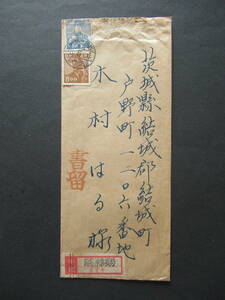 茨城縣結城郡結城町
戸野町一二〇六番地
木村はる様
書留
8.00